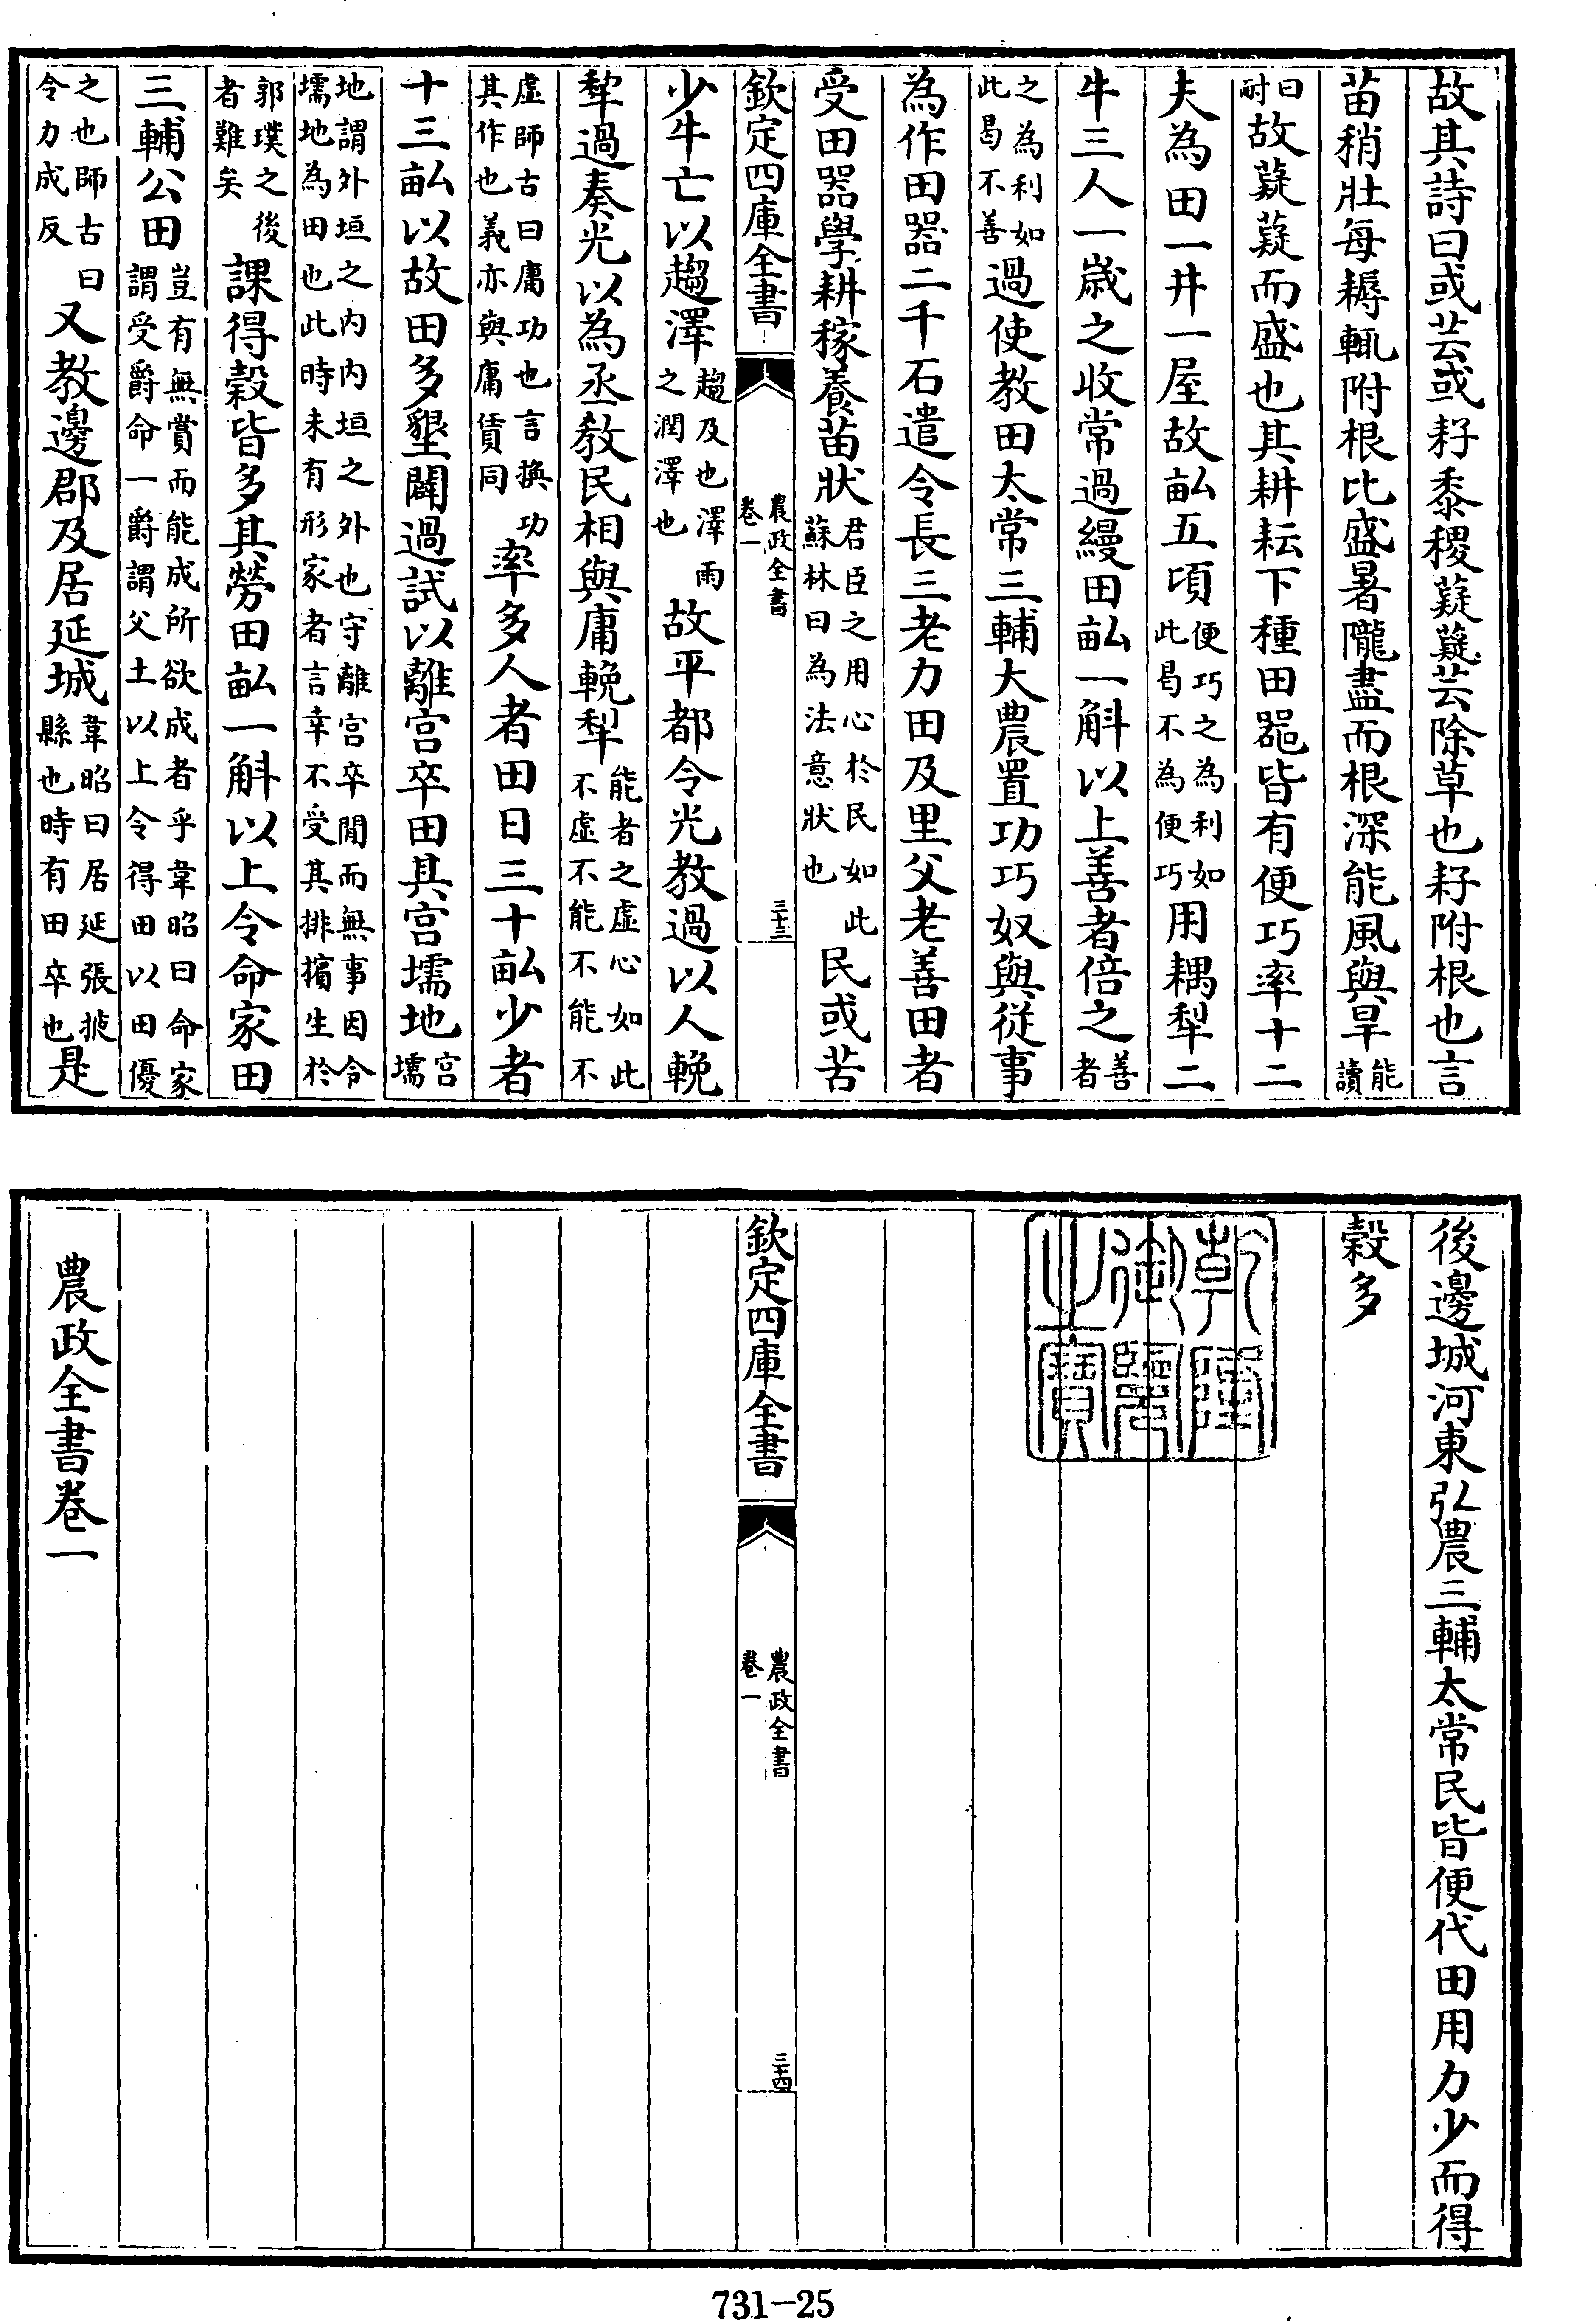 故其詩曰或芸或芓黍稷薿薿芸除草也芓附根也言
苗稍壯每耨輒附根比盛暑隴盡而根深能風與旱能讀
曰耐故薿薿而盛也其耕耘下種田器皆有便巧率十二
夫為田一井一屋故畝五頃便巧之為利如此曷不為便巧用耦犁二
牛三人一歲之收常過縵田畝一斛以上善者倍之善者
之為利如此曷不善過使教田太常三輔大農置功巧奴與從事
為作田器二千石遣令長三老力田及里父老善田者
受田器學耕稼養苗狀君臣之用心於民如此蘇林曰為法意狀也民或苦
欽定四庫全書
農政全書
卷一
三十三
少牛亡以趨澤趨及也澤雨之潤澤也故平都令光教過以人輓
犂過奏光以為丞教民相與庸輓犁能者之虛心如此不虛不能不能不
虛師古曰庸功也言換功其作也義亦與庸賃同率多人者田日三十畝少者
十三畝以故田多墾闢過試以離宮卒田其宮壖地宮壖
地謂外垣之內內垣之外也守離宮卒閒而無事因令壖地為田也此時未有形家者言幸不受其排擯生於
郭璞之後者難矣課得穀皆多其勞田畝一斛以上令命家田
三輔公田豈有無賞而能成所欲成者乎韋昭曰命家謂受爵命一爵謂父士以上令得田以田優
之也師古曰令力成反又教邊郡及居延城韋昭曰居延張掖縣也時有田卒也是
後邊城河東弘農三輔太常民皆便代田用力少而得
穀多
乾隆御覽之寶
欽定四庫全書
農政全書
卷一
三十四
農政全書卷一
731-25